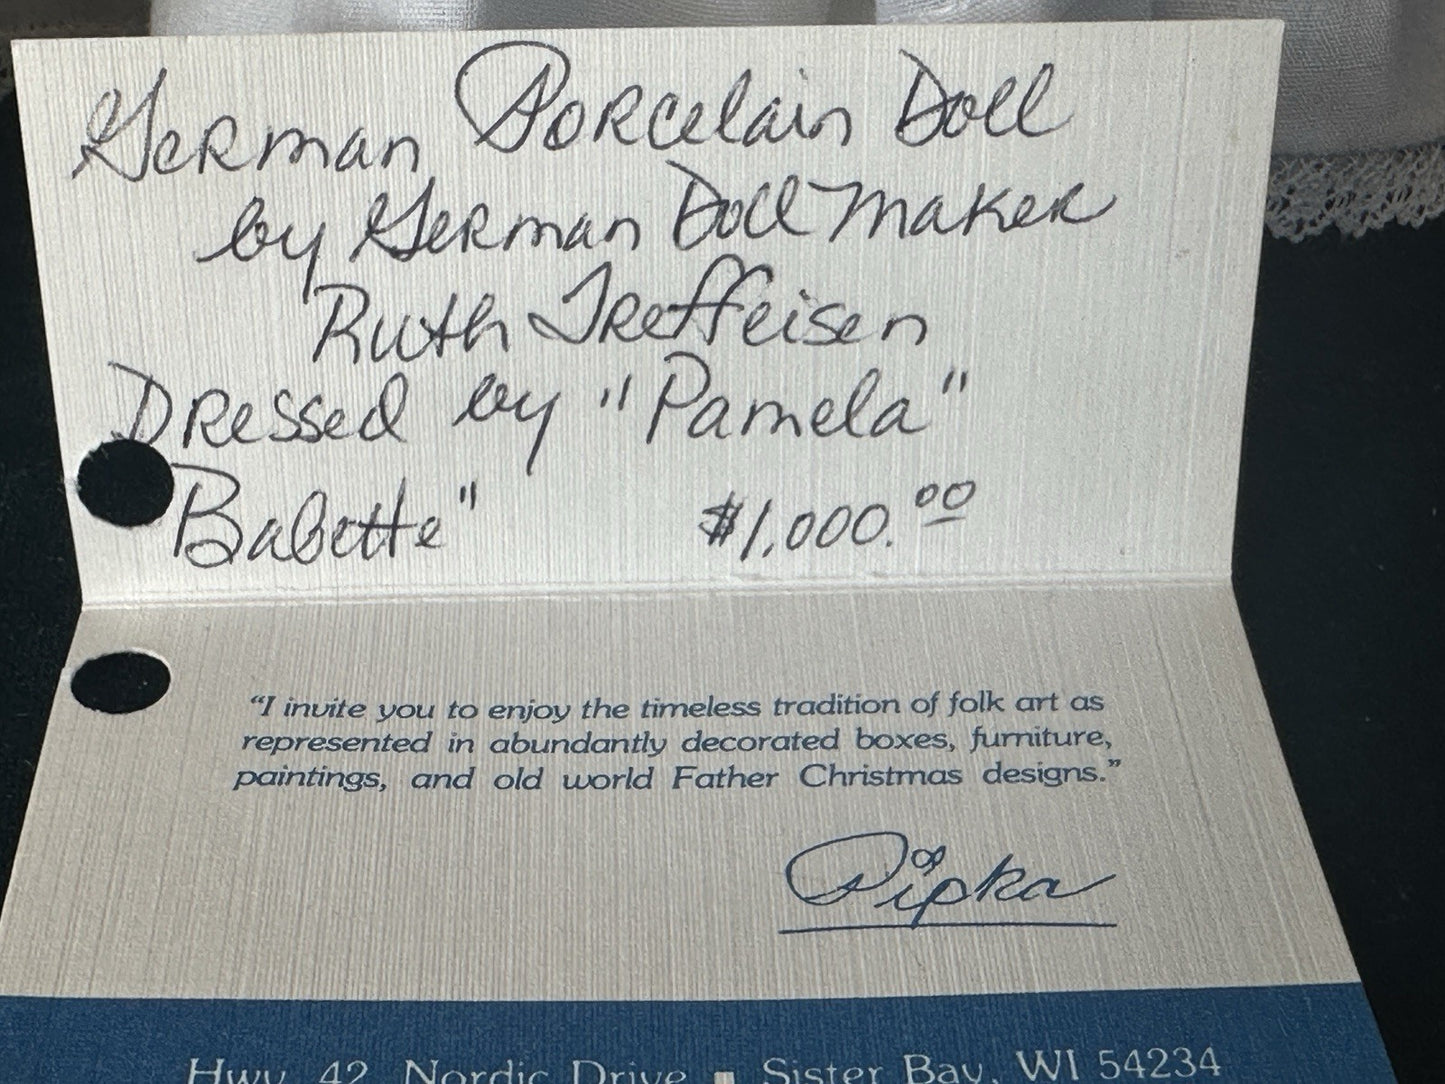 German Porcelain Doll
by German Doll Maker
Ruth Treffeisen
Dressed by "Pamela"
Babette" $1,000.00
“I invite you to enjoy the timeless tradition of folk art as
represented in abundantly decorated boxes, furniture,
paintings, and old world Father Christmas designs.”
Pipka
Hwy 42 Nordic Drive ■ Sister Bay, WI 54234